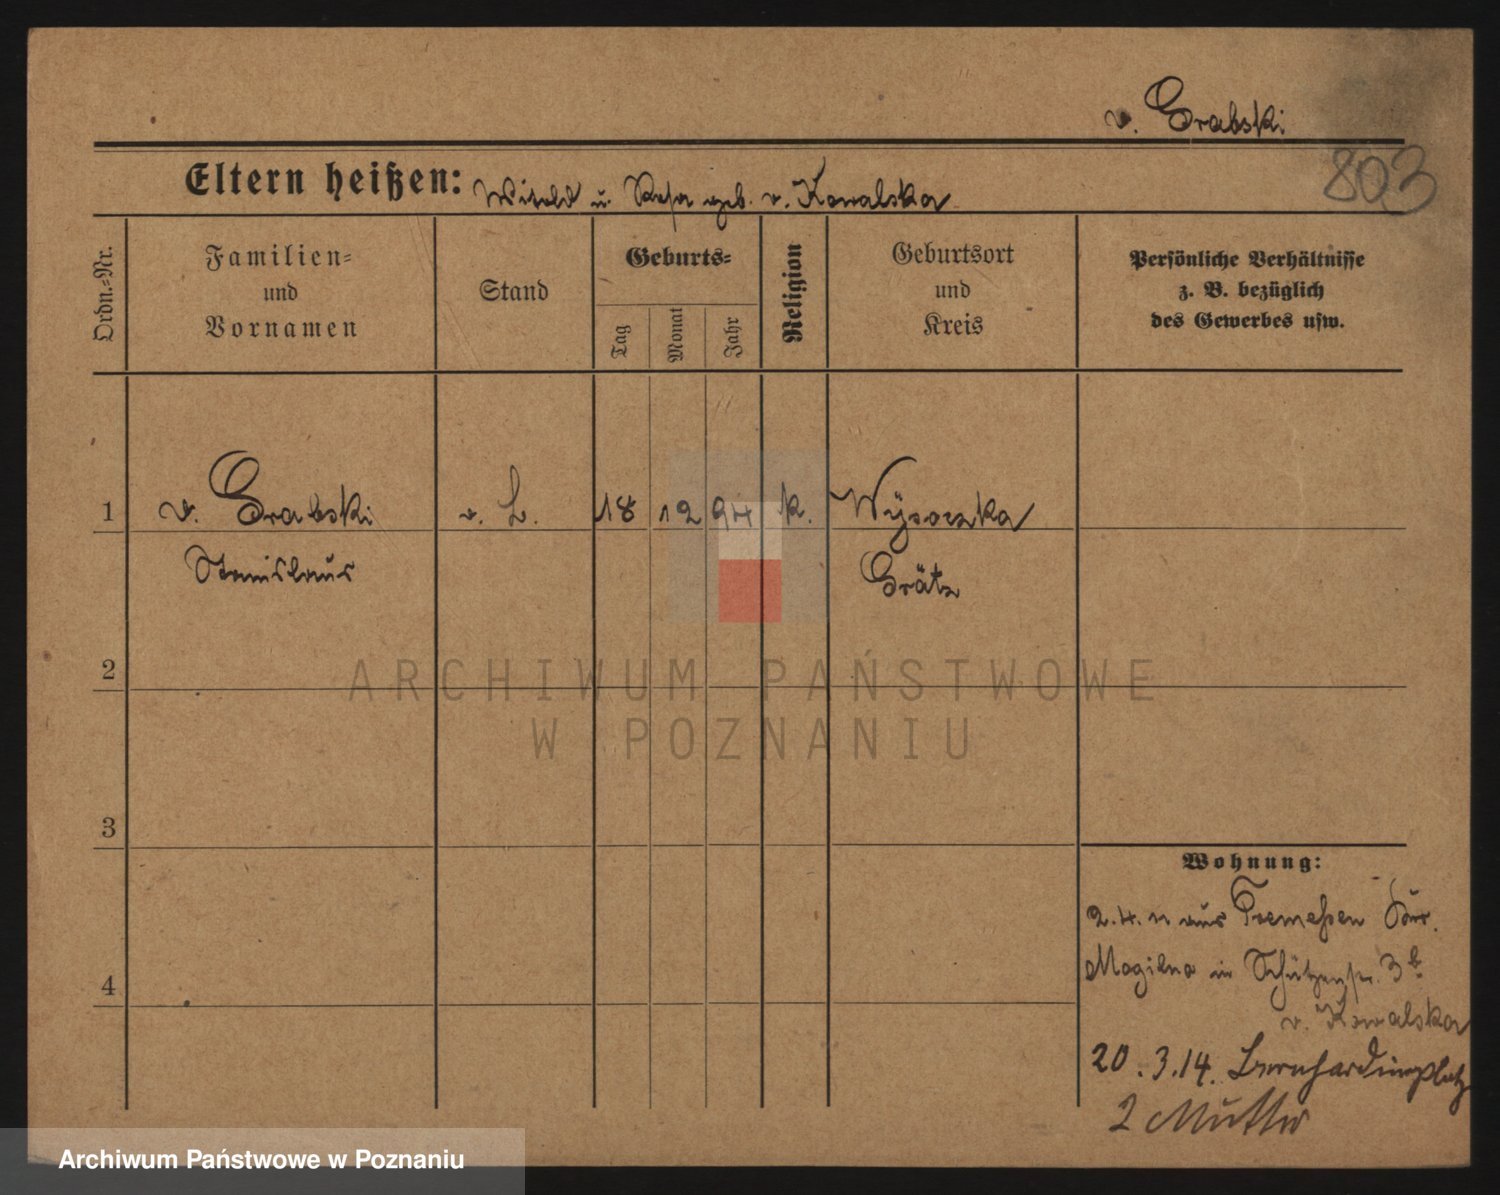 v. Grabski
803
Eltern heißen: Witold u. Rosa geb. v. Kowalska
Ordn.-Nr.
Familien- und Vornamen
Stand
Geburts-
Tag
Monat
Jahr
Religion
Geburtsort und Kreis
Persönliche Verhältnisse
z. B. bezüglich
des Gewerbes usw.
1 v. Grabski v. L. 18 12 94 k. Wysoczka
Stanislaus Grätz
2
ARCHIWUM PAŃSTWOWE
W POZNANIU
3
4
Wohnung:
2.4.11 aus Tremessen
Mogilno in Schützenstr. 3b
v. Kowalska
20.3.14. Bernhardinerplatz
2 Mutter
Archiwum Państwowe w Poznaniu